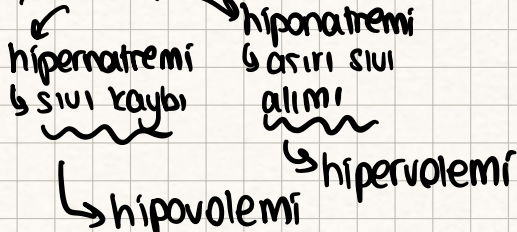 hipernatremi
↳ sıvı kaybı
↳ hipovolemi
hiponatremi
↳ aşırı sıvı
alımı
↳ hipervolemi